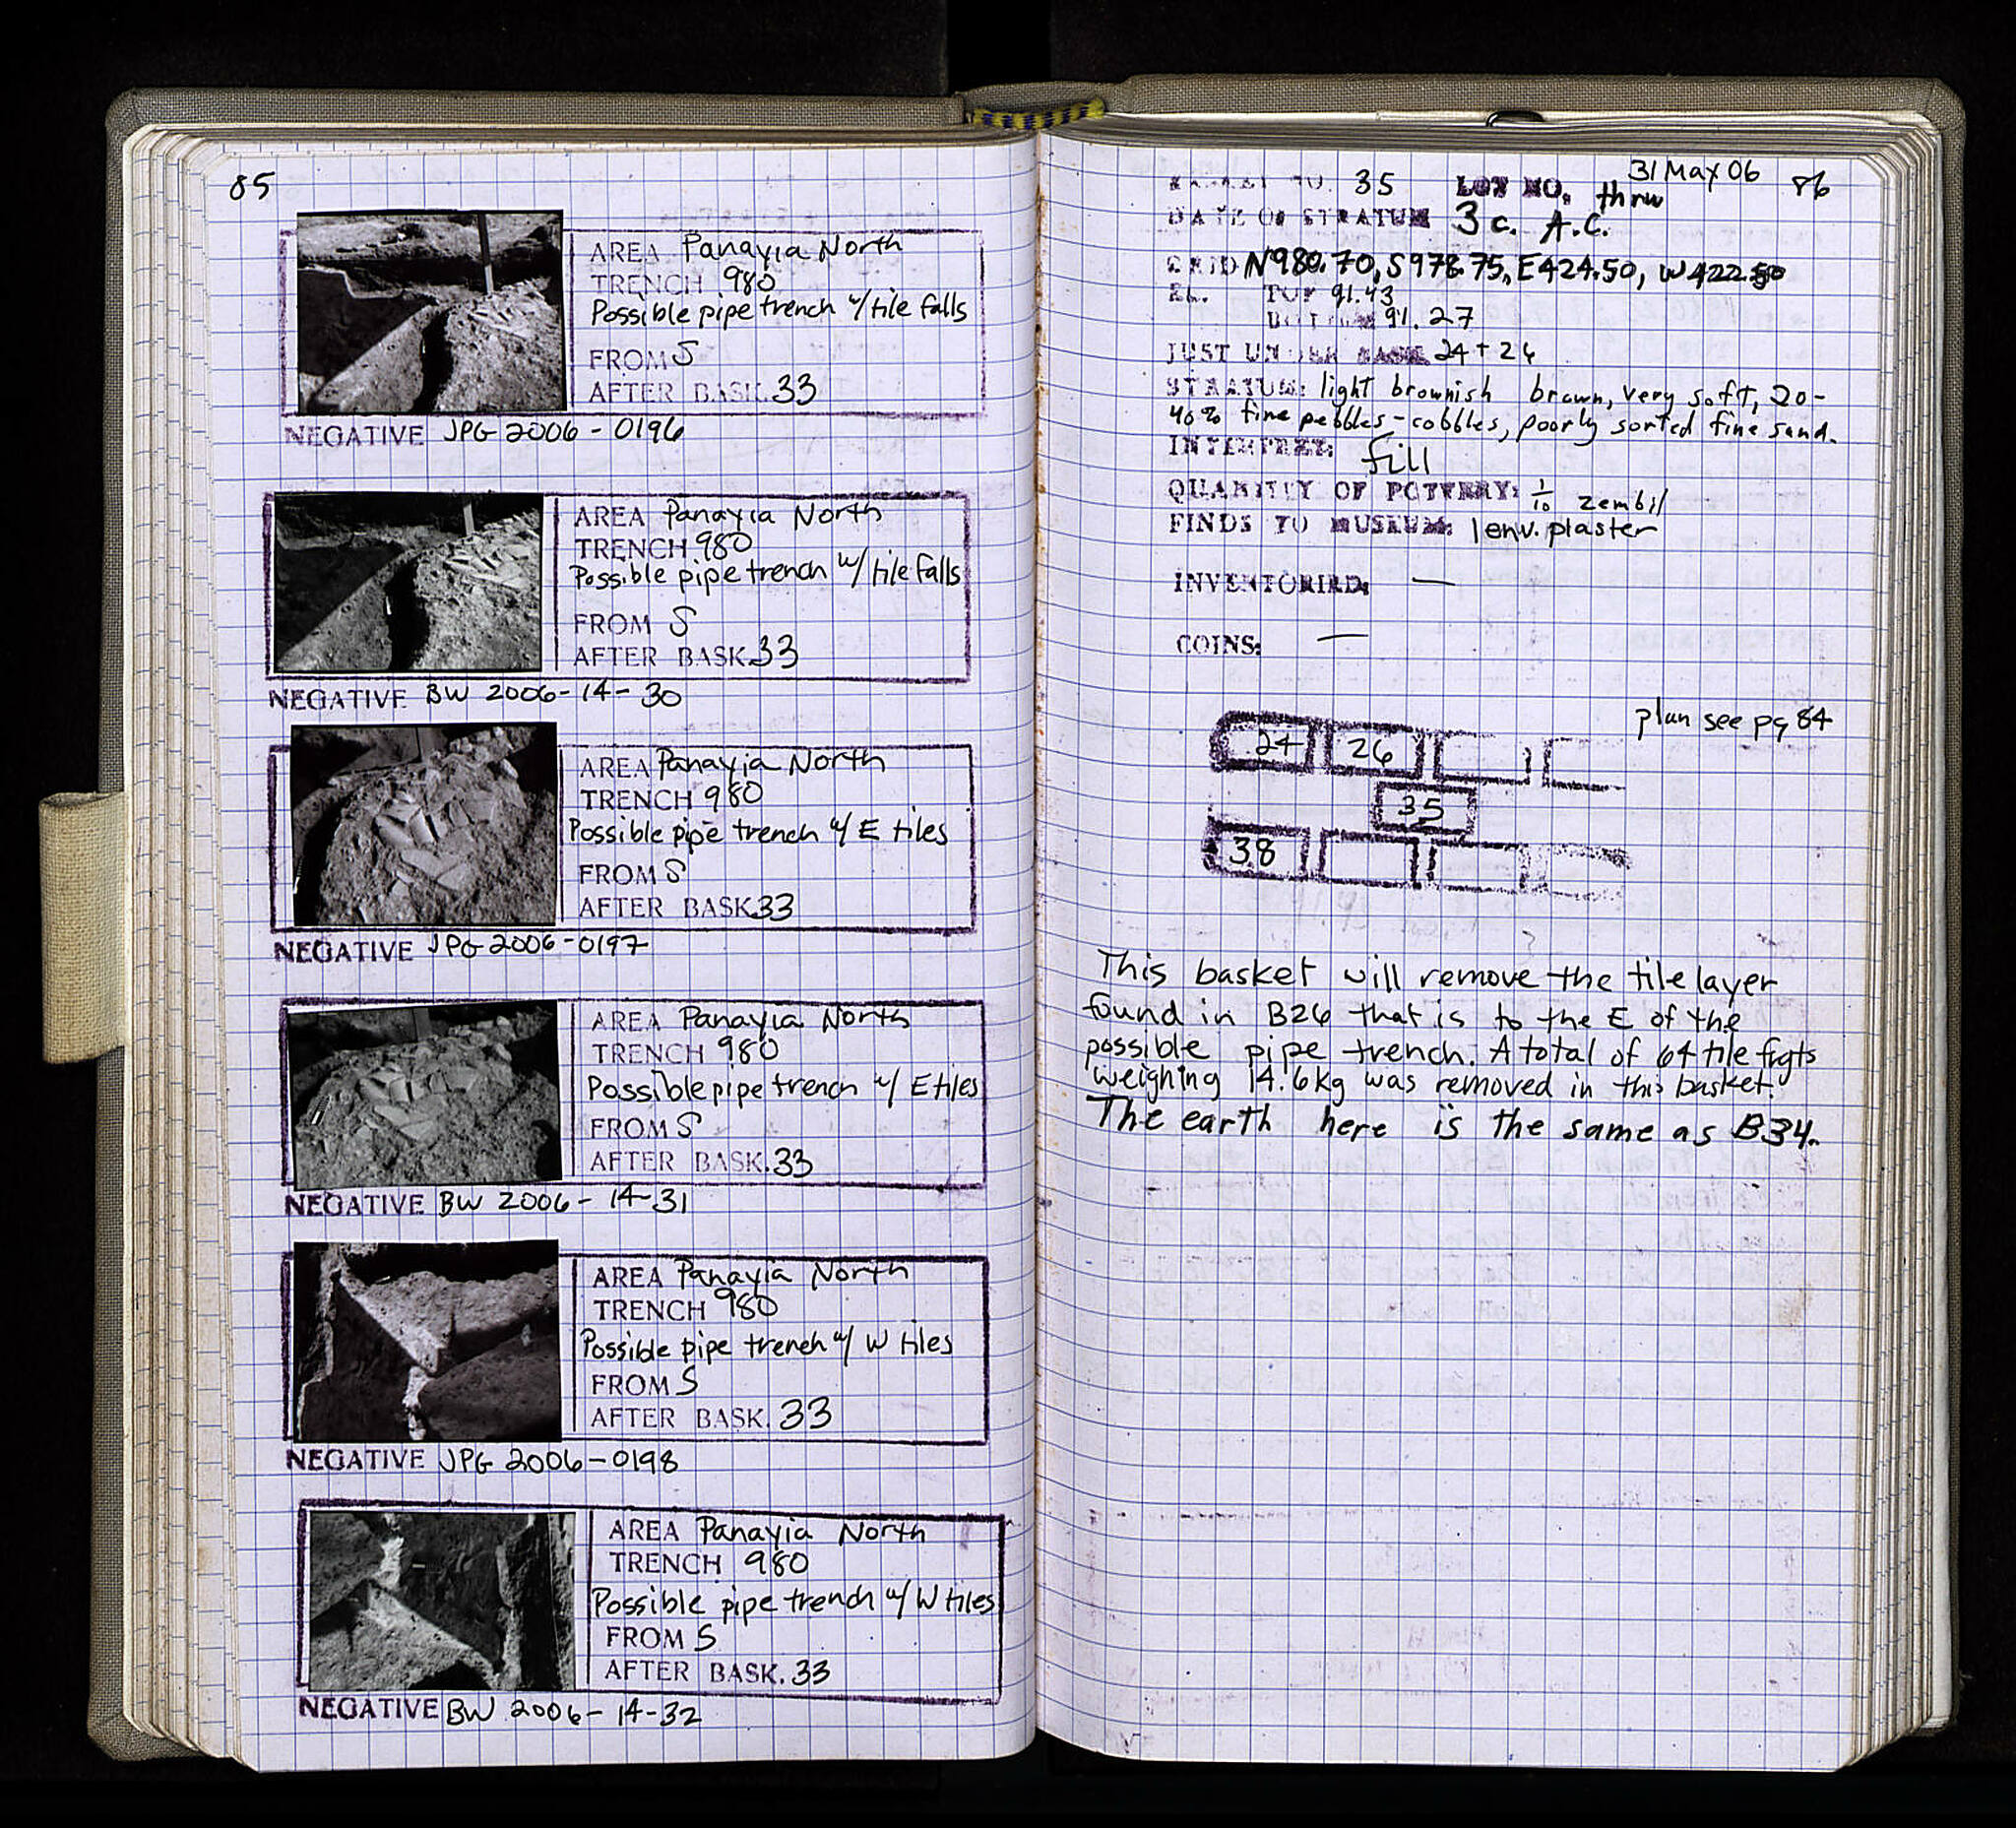 85
AREA Panayia North
TRENCH 980
Possible pipe trench w/ tile falls
FROM S
AFTER BASK. 33
NEGATIVE JPG 2006-0196
AREA Panayia North
TRENCH 980
Possible pipe trench w/ tile falls
FROM S
AFTER BASK. 33
NEGATIVE BW 2006-14-30
AREA Panayia North
TRENCH 980
Possible pipe trench w/ E tiles
FROM S
AFTER BASK. 33
NEGATIVE JPG 2006-0197
AREA Panayia North
TRENCH 980
Possible pipe trench w/ E tiles
FROM S
AFTER BASK. 33
NEGATIVE BW 2006-14-31
AREA Panayia North
TRENCH 980
Possible pipe trench w/ W tiles
FROM S
AFTER BASK. 33
NEGATIVE JPG 2006-0198
AREA Panayia North
TRENCH 980
Possible pipe trench w/ W tiles
FROM S
AFTER BASK. 33
NEGATIVE BW 2006-14-32
31 May 06 86
BASKET NO. 35 LOT NO. thrw
DATE OF STRATUM 3 c. A.C.
GRID N980.70, S978.75, E424.50, W422.50
EL. TOP 91.43
BOTTOM 91.27
JUST UNDER BASK. 24 + 26
STRATUM: light brownish brown, very soft, 20-
40% fine pebbles-cobbles, poorly sorted fine sand.
INTERPRET: fill
QUANTITY OF POTTERY: 1/10 zembil
FINDS TO MUSEUM: 1 env. plaster
INVENTORIED: —
COINS: —
plan see pg 84
24 26
35
38
This basket will remove the tile layer
found in B26 that is to the E of the
possible pipe trench. A total of 64 tile frgts
weighing 14.6kg was removed in this basket.
The earth here is the same as B34.